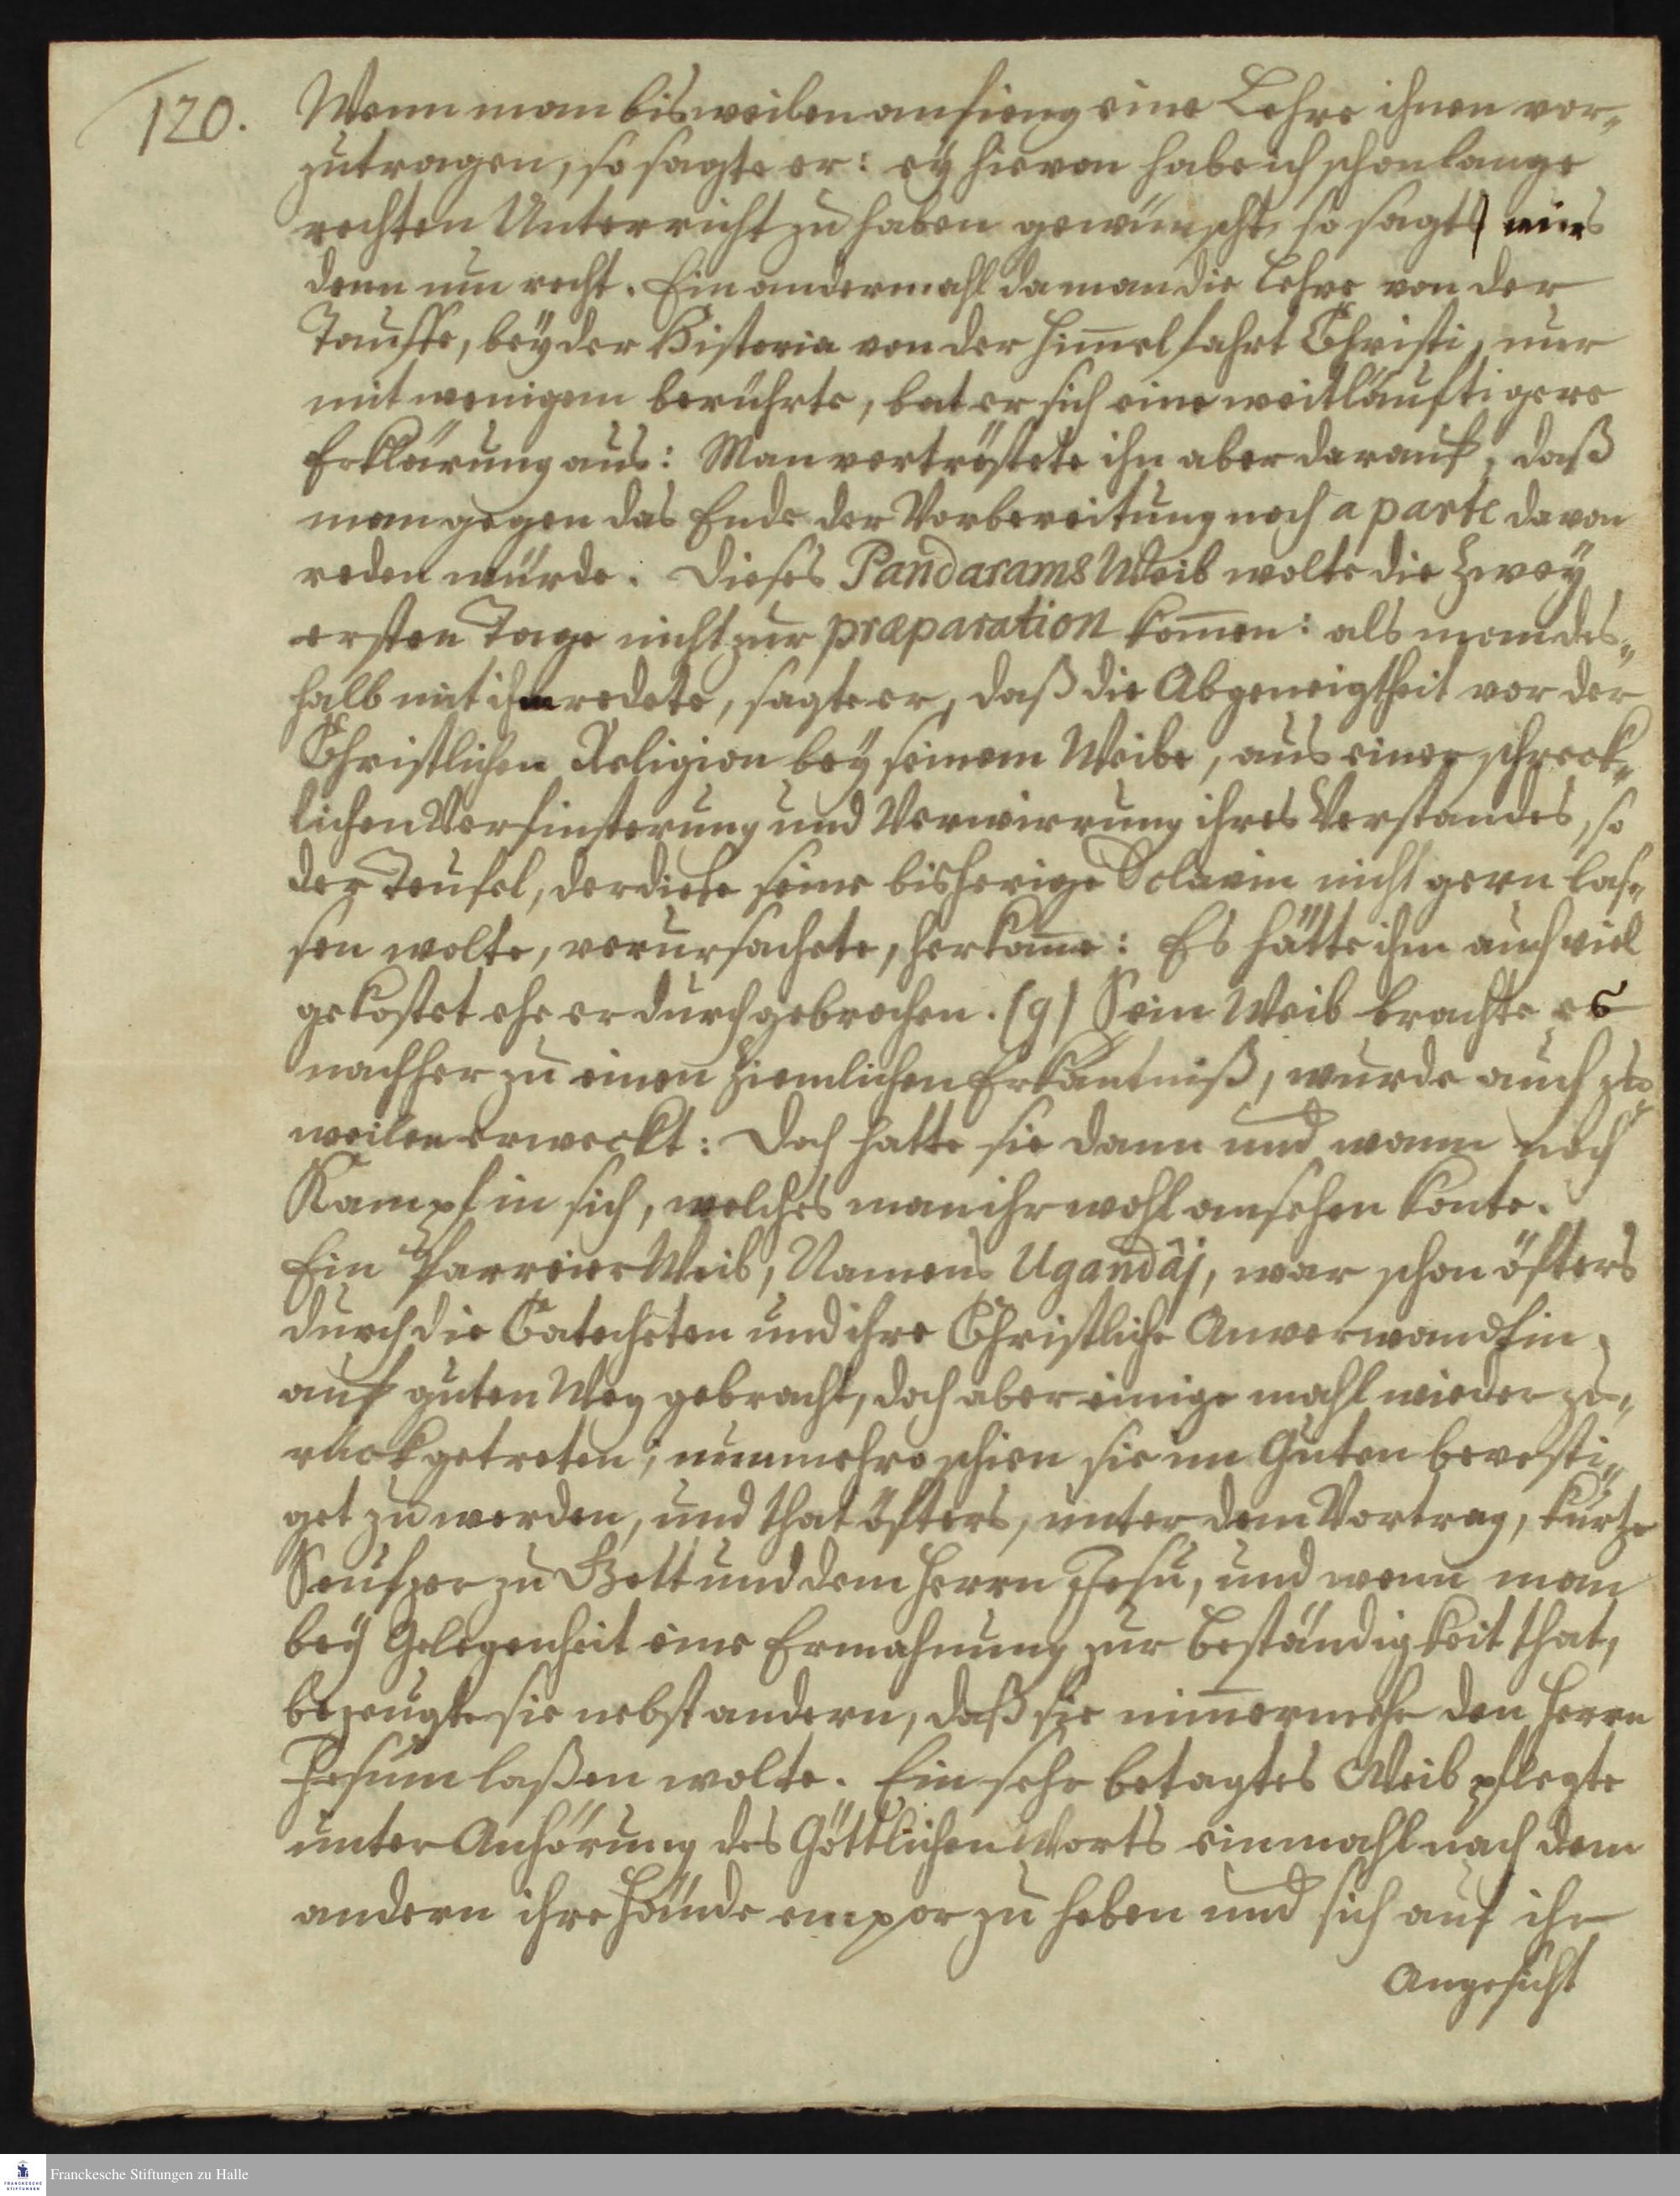 120.
Wenn man bisweilen anfieng eine Lehre ihnen vor„
zutragen, so sagte er: ey hievon habe ich schon lange
rechten Unterricht zu haben gewünscht, so sagts mirs
denn nun recht. Ein andermahl da man die Lehre von der
Tauffe, bey der Historia von der Him̅elfahrt Christi, nur
mit wenigem berührte, bat er sich eine weitläuftigere
Erklärung aus: Man vertröstete ihn aber darauf, daß
man gegen das Ende der Vorbereitung noch a parte davon
reden würde. Dieses Pandarams Weib wolte die zwey
ersten Tage nicht zur præparation kom̅en: als man des„
halb mit ihm redete, sagte er, daß die Abgeneigtheit vor der
Christlichen Religion bey seinem Weibe, aus einer schreck„
lichen Verfinsterung und Verwirrung ihres Verstandes, so
der Teufel, der diese seine bisherige Sclavin nicht gern las„
sen wolte, verursachete, herkam̅e: Es hätte ihm auch viel
gekostet ehe er durchgebrochen. (g) Sein Weib brachte es
nachher zu einen ziemlichen Erkäntniß, wurde auch zu
weilen erweckt: Doch hatte sie dann und wann noch
Kampf in sich, welches man ihr wohl ansehen konte.
Ein Parreier Weib, Namens Ugandâj, war schon öfters
durch die Catecheten und ihre Christliche Anverwandtin,
auf guten Weg gebracht, doch aber einige mahl wieder zu„
rückgetreten; nunmehro schien sie im Guten bevesti„
get zu werden, und that öfters, unter dem Vortrag, kurtze
Seufzer zu Gott und dem Herrn Jesu, und wenn man
bey Gelegenheit eine Ermahnung zur Beständigkeit that,
bezeugte sie nebst andern, daß sie nim̅ermehr den Herrn
Jesum laßen wolte. Ein sehr betagtes Weib pflegte
unter Anhörung des Göttlichen Worts einmahl nach dem
andern ihre Hände empor zu heben und sich auf ihr
Angesicht
Franckesche Stiftungen zu Halle